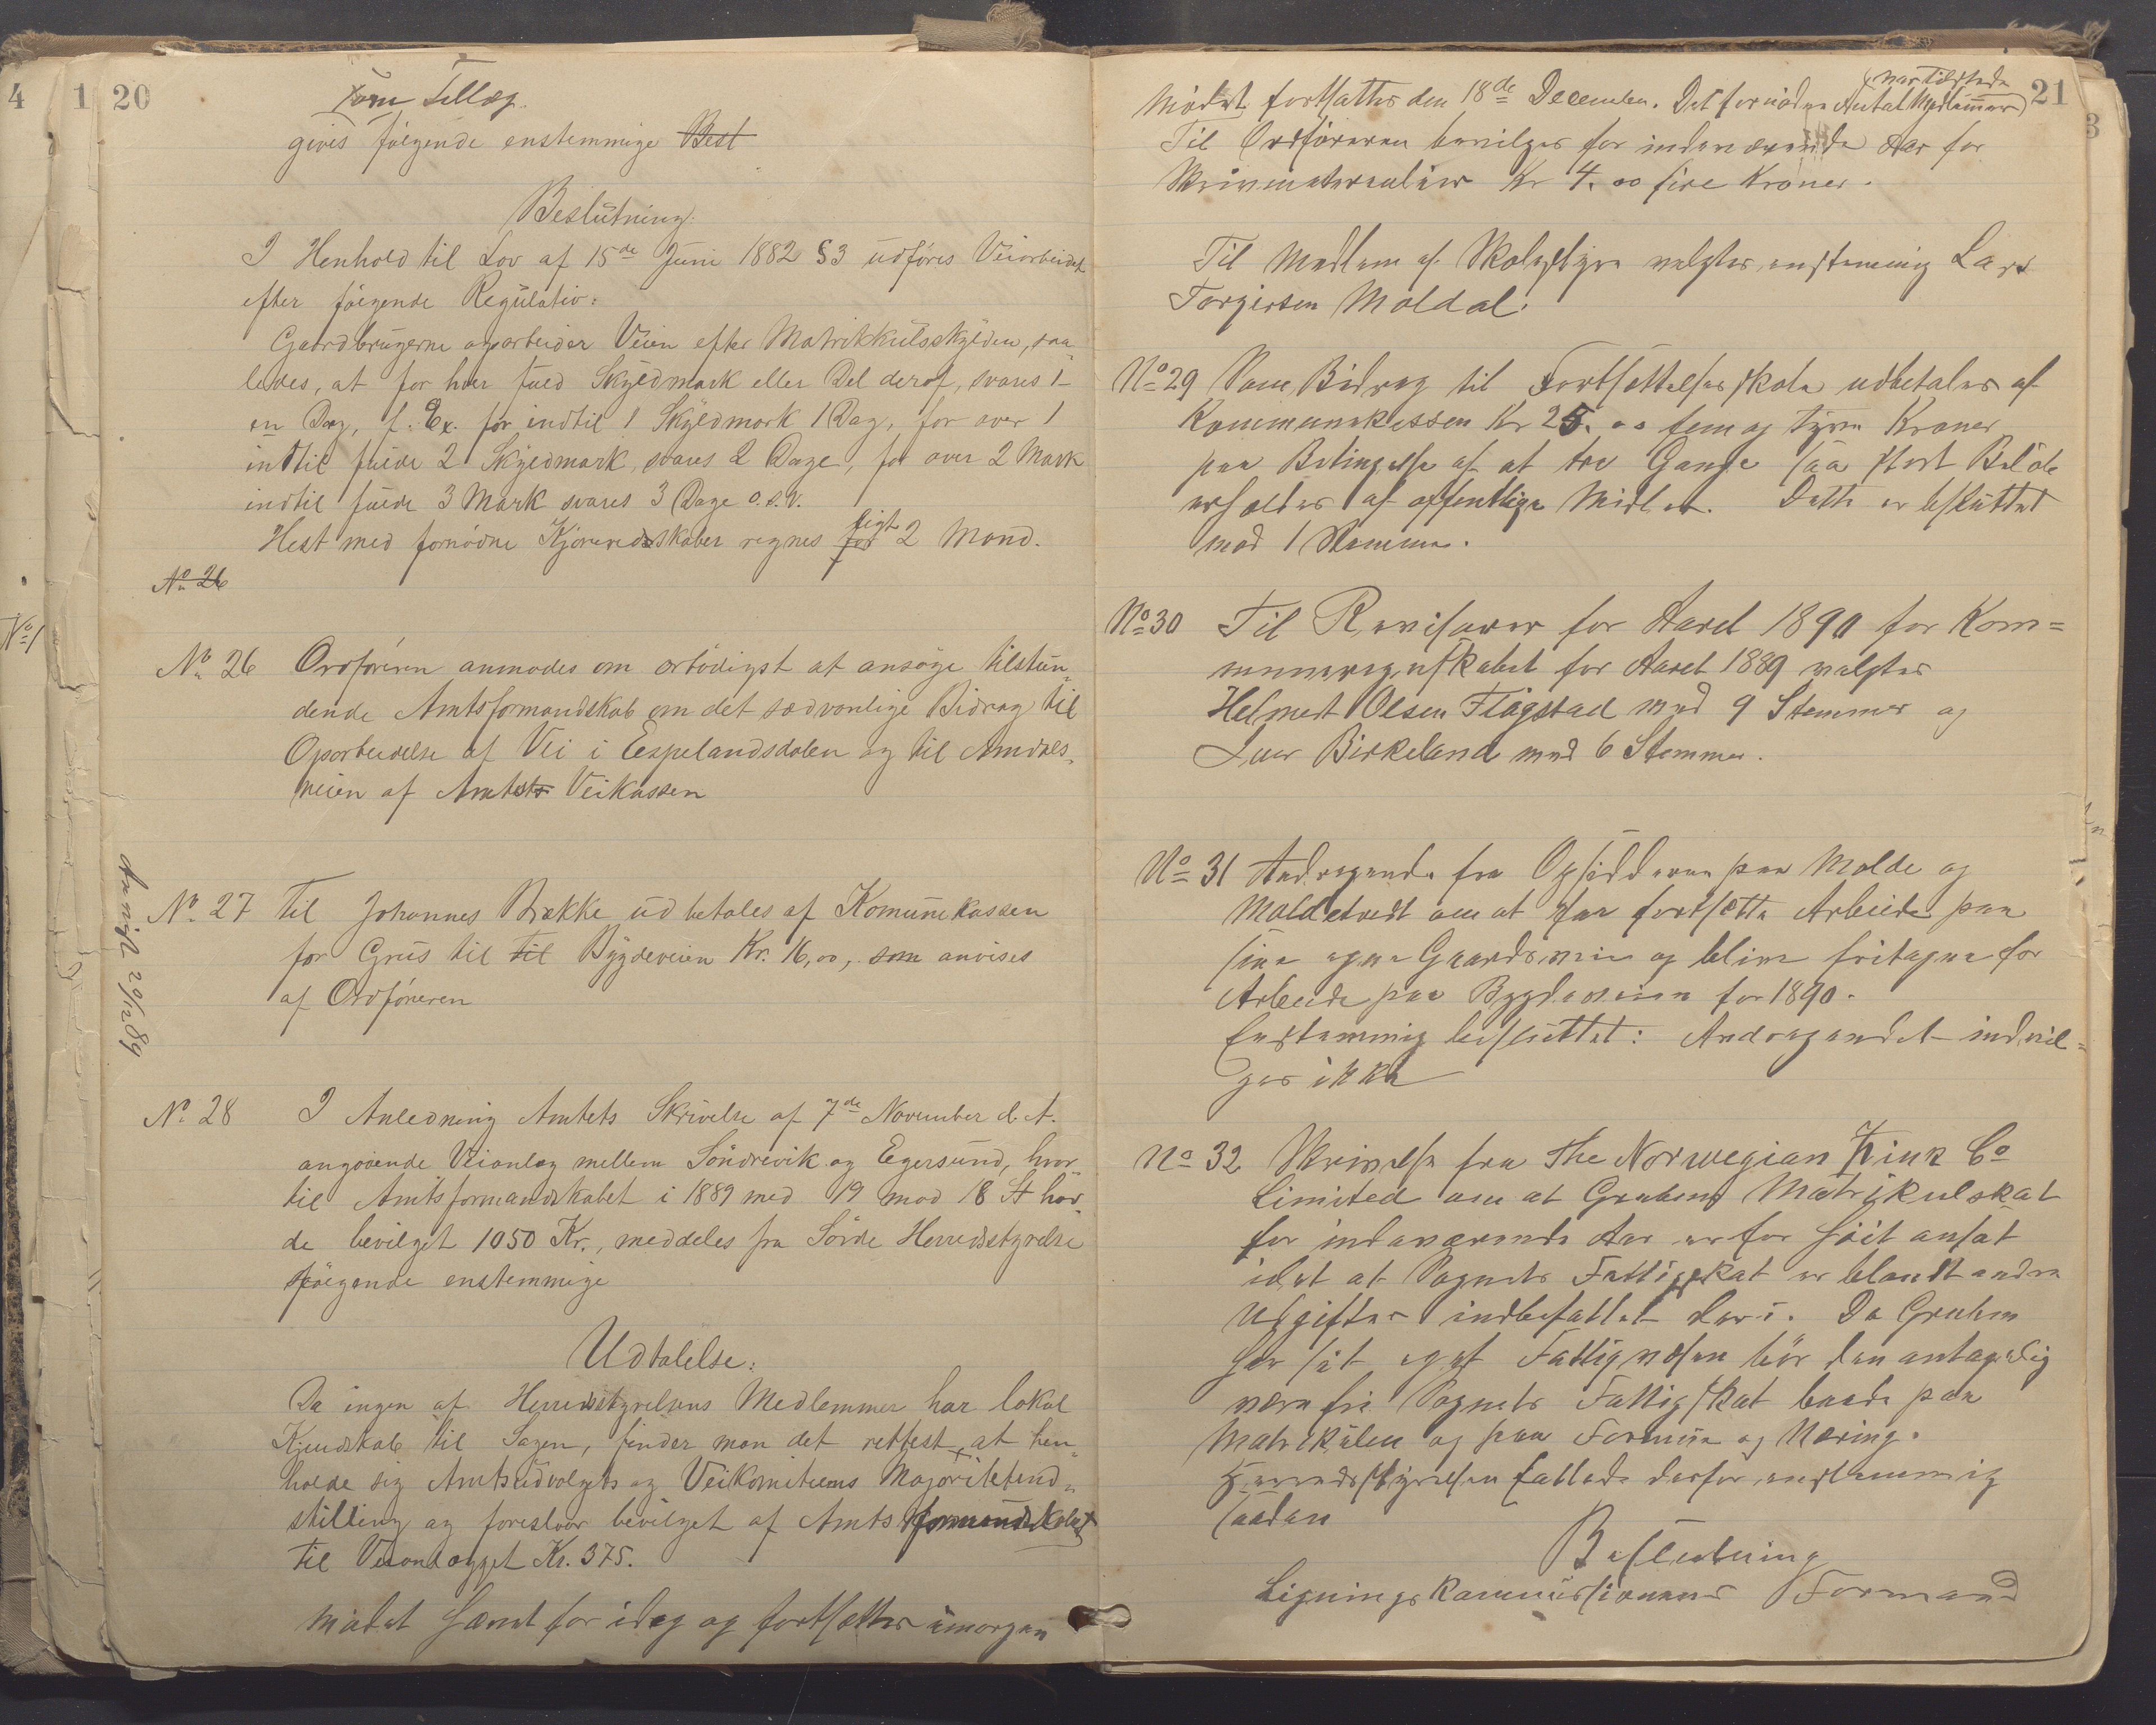 20
Som Tillæg
gives følgende enstemmige Best
Beslutning:
I Henhold til Lov af 15de Juni 1882 §3 udføres Veiarbeidet
efter følgende Regulativ:
Gaardbrugerne oparbeider Veien efter Matrikkulsskylden, saa-
ledes, at for hver fuld Skyldmark eller Del deraf, svares 1
en Dag, f. Ex. for indtil 1 Skyldmark 1 Dag, for over 1
indtil fulde 2 Skyldmark, svares 2 Dage, for over 2 Mark
indtil fulde 3 Mark svares 3 Dage o.s.v.
Hest med fornødne Kjøreredskaber regnes for ligt 2 Mand.
No 26
No 26 Ordføreren anmodes om ærbødigst at ansøge tilstun-
dende Amtsformandskab om det sædvanlige Bidrag til
Oparbeidelse af Vei i Espelandsdalen og til Amdals-
veien af Amtets Veikassen
No 27 Til Johannes Bakke udbetales af Komunekassen
for Grus til til Bygdeveien Kr. 16,00, som anvises
af Ordføreren
Anvist 20/12 89
No 28 I Anledning Amtets Skrivelse af 7de November d. A.
angaaende Veianlæg mellem Søndrevik og Egersund, hvor-
til Amtsformandskabet i 1889 med 19 mod 18 St. hav-
de bevilget 1050 Kr., meddeles fra Herredsstyrelse
følgende enstemmige
Udtalelse:
Da ingen af Herredsstyrelsens Medlemmer har lokal
Kjendskab til Sagen, finder man det rettest, at hen-
holde sig Amtsudvalgets og Veikomiteens Majoritetind-
stilling og foreslaar bevilget af Amtsformandskabet
til Veianlægget Kr. 375.
Mødet hævet for idag og fortsættes imorgen
21
Mødet fortsattes den 18de December. Det fornødne Antal Medlemmer var tilstede
Til Ordføreren bevilges for indeværende Aar for
Skrivmaterialier Kr 4.00 fire Kroner.
Til Medlem af Skolestyre valgtes enstemmig Lars
Torgersen Moldal.
No 29 Som Bidrag til Fortsættelsesskole udbetales af
Kommunekassen Kr 25.00 fem og tyve Kroner
paa Betingelse af at tre Gange saa stort Beløb
erholdes af offentlige Midler. Dette er besluttet
mod 1 Stemme.
No 30 Til Revisorer for Aaret 1890 for Kom=
muneregnskabet for Aaret 1889 valgtes
Helmert Olsen Fløgstad med 9 Stemmer og
Birkeland med 6 Stemmer.
No 31 Andragende fra Opsidderne paa Molde og
Moldetvedt om at faa fortsætte Arbeide paa
sine egne Gaardsveie og blive fritagne for
Arbeide paa Bygdeveien for 1890.
Enstemmig besluttet: Andragendet indvil=
ges ikke
No 32 Skrivelse fra The Norwegian Zink Co
Limited om at Grubens Matrikulskat
for indeværende Aar er for høit ansat
idet at Sognets Fattigskat er blandt andre
Udgifter indbefattet deri. Da Gruben
har sit eget Fattigvæsen bør den antagelig
være fri Sognets Fattigskat baade paa
Matrikulen og paa Formue og Næring.
Herredsstyrelsen fattede derfor enstemmig
saadan
Beslutning
Ligningskommissionens Formand